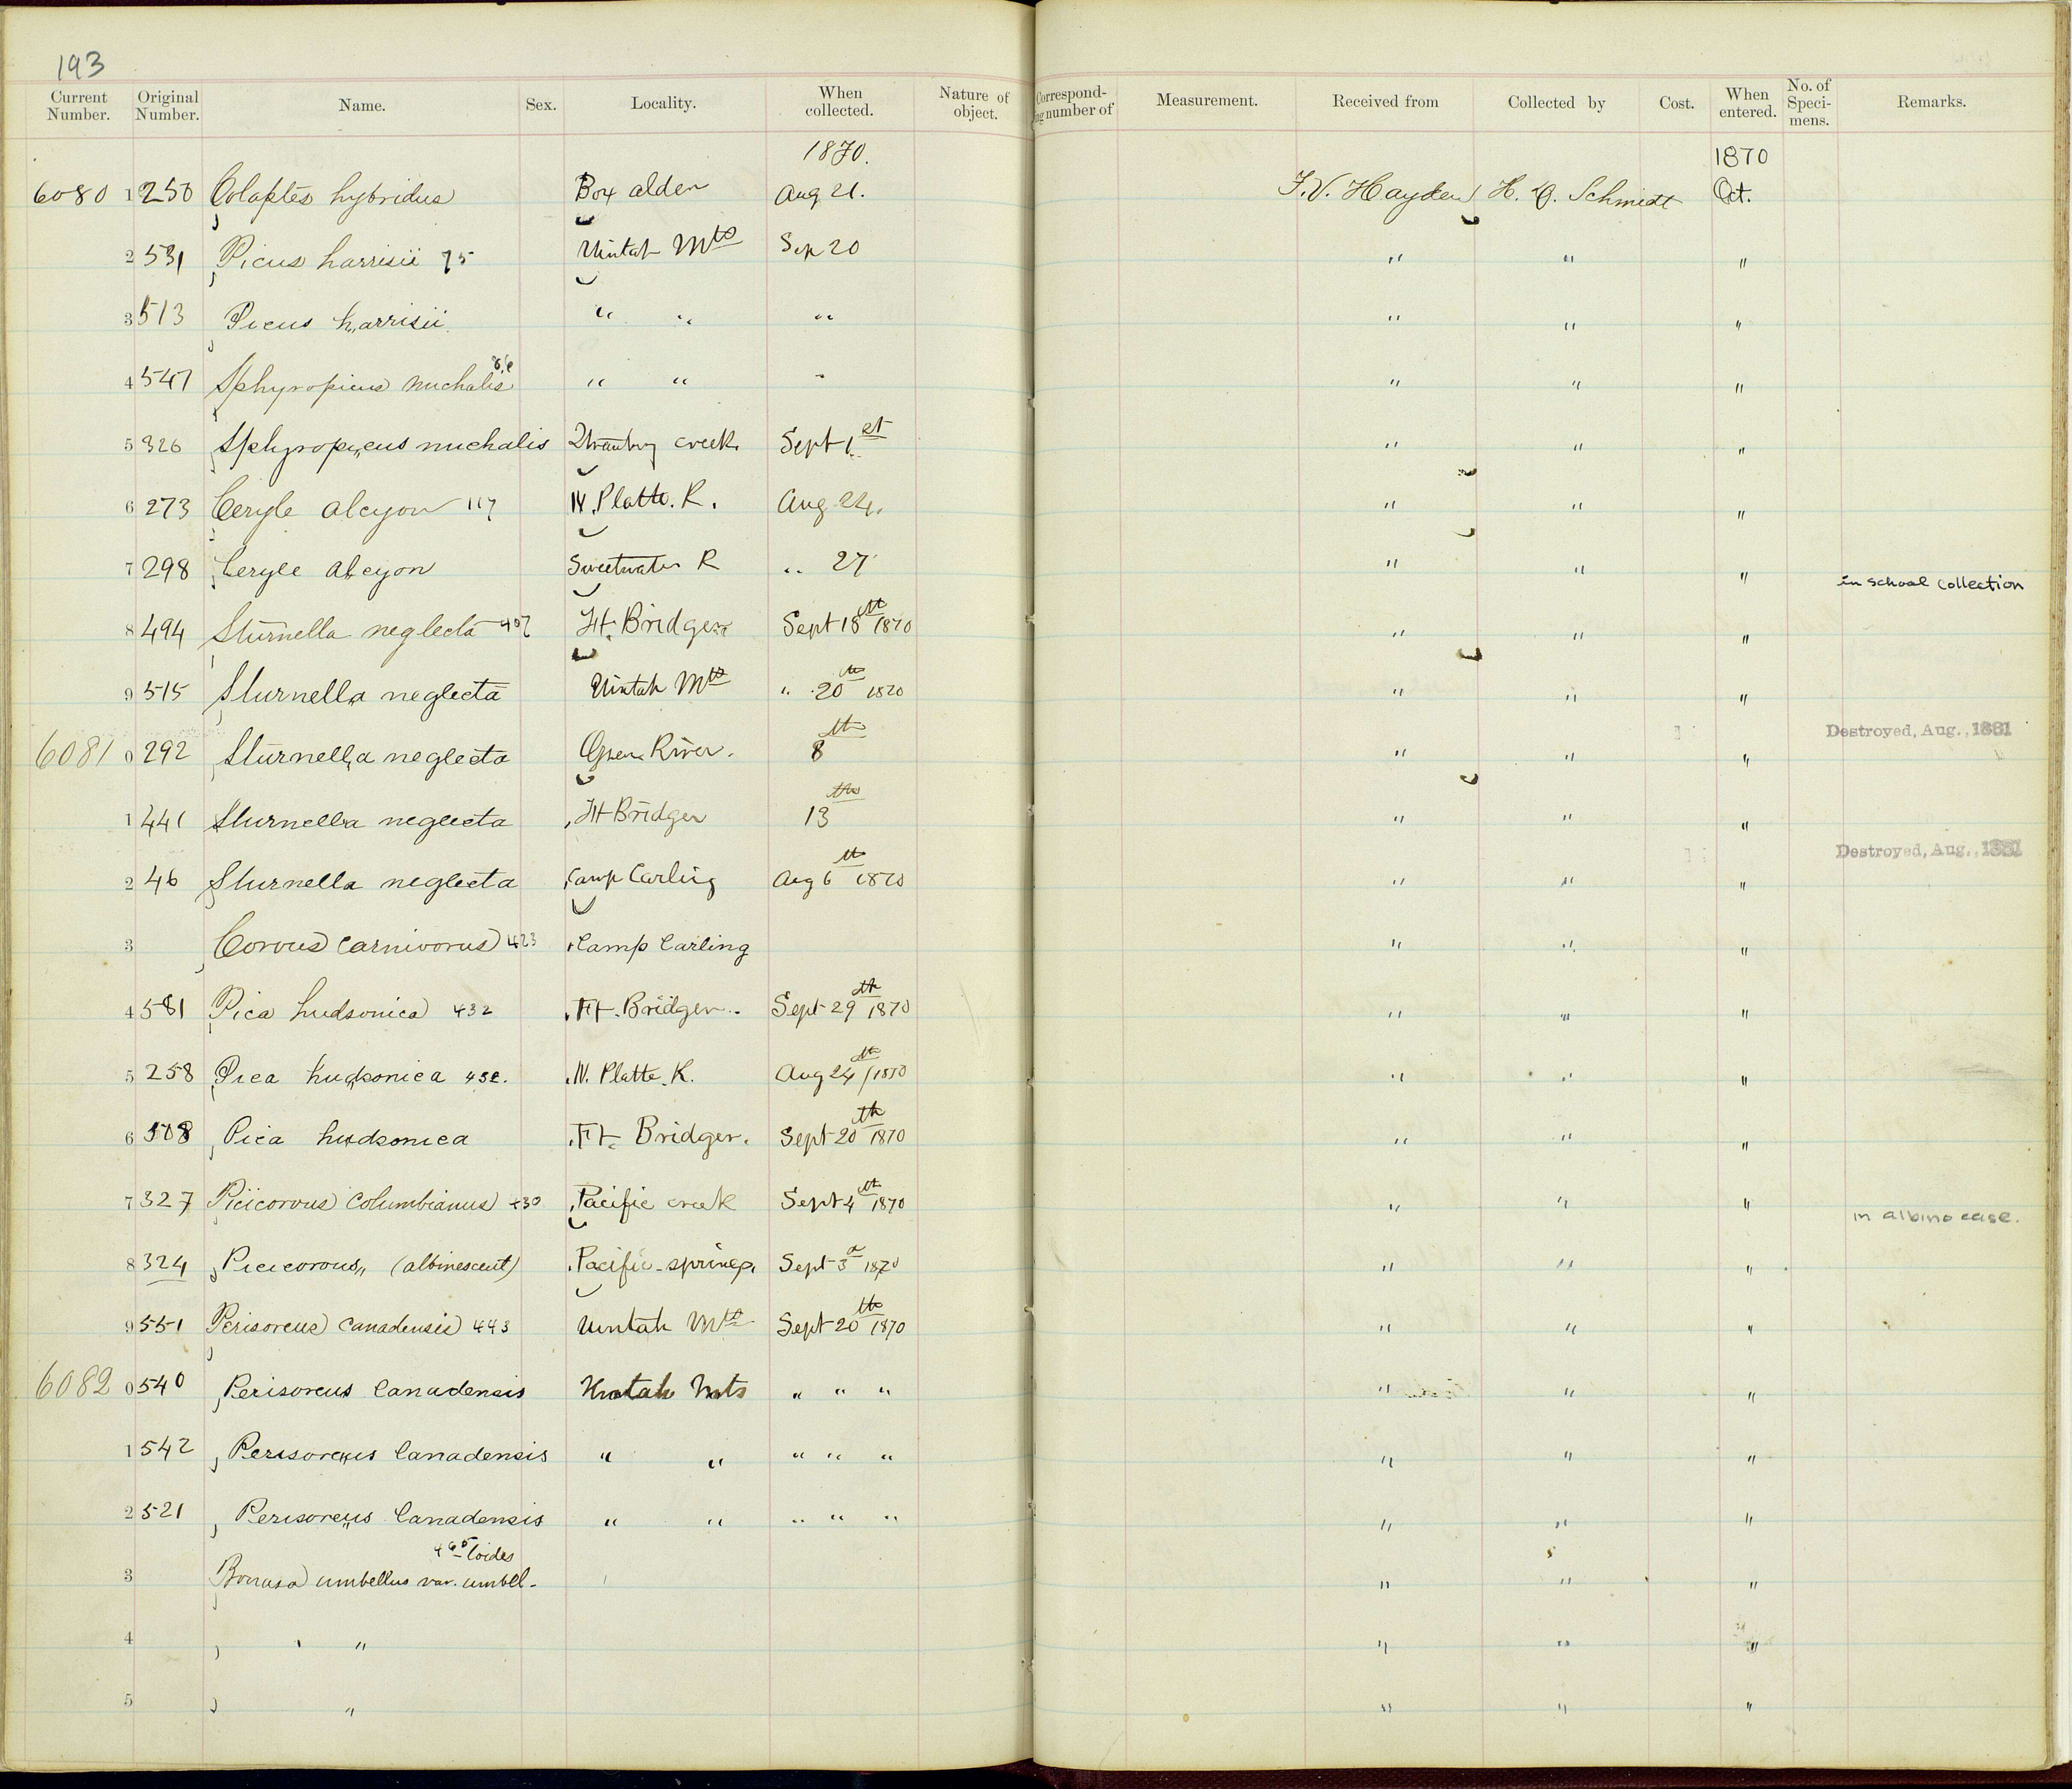 193
Current Number. Original Number. Name. Sex. Locality. When collected. Nature of object. Correspond-ing number of Measurement. Received from Collected by Cost. When entered. No. of Speci-mens. Remarks.
1870. 1870
6080 1 250 Colaptes hybridus Box alder Aug 21. F.V. Hayden H. D. Schmidt Oct.
2 531 Picus harrisii 75 Uintah Mts Sep 20 " " "
3 513 Picus harrisii " " " " " "
4 547 Sphyropicus nuchalis 86 " " " " " "
5 326 Sphyropicus nuchalis creek Sept 1st " " "
6 273 Ceryle alcyon 117 N. Platte. R. Aug 24. " " "
7 298 Ceryle alcyon Sweetwater R " 27 " " " in school collection
8 494 Sturnella neglecta 407 Ft. Bridger Sept 18th 1870 " " "
9 515 Sturnella neglecta Uintah Mts " 20th 1870 " " "
6081 0 292 Sturnella neglecta Green River. 8th " " " Destroyed, Aug., 1881
1 441 Sturnella neglecta Ft Bridger 13th " " "
2 46 Sturnella neglecta Camp Carling Aug 6th 1870 " " " Destroyed, Aug., 1881
3 Corvus carnivorus 423 Camp Carling " " "
4 581 Pica hudsonica 432 Ft. Bridger. Sept 29th 1870 " " "
5 258 Pica hudsonica 432. N. Platte. R. Aug 24th 1870 " " "
6 508 Pica hudsonica Ft. Bridger. Sept 20th 1870 " " "
7 327 Picicorvus columbianus 430 Pacific creek Sept 4th 1870 " " "
8 324 Picicorvus " (albinescent) Pacific springs. Sept 3d 1870 " " " in albino case.
9 551 Perisoreus canadensis 443 Uintah Mts Sept 20th 1870 " " "
6082 0 540 Perisoreus Canadensis Uintah Mts " " " " " "
1 542 Perisoreus Canadensis " " " " " " " "
2 521 Perisoreus Canadensis " " " " " " " "
465 loides
3 Bonasa umbellus var. umbel- " " "
4 " " " "
5 " " " "